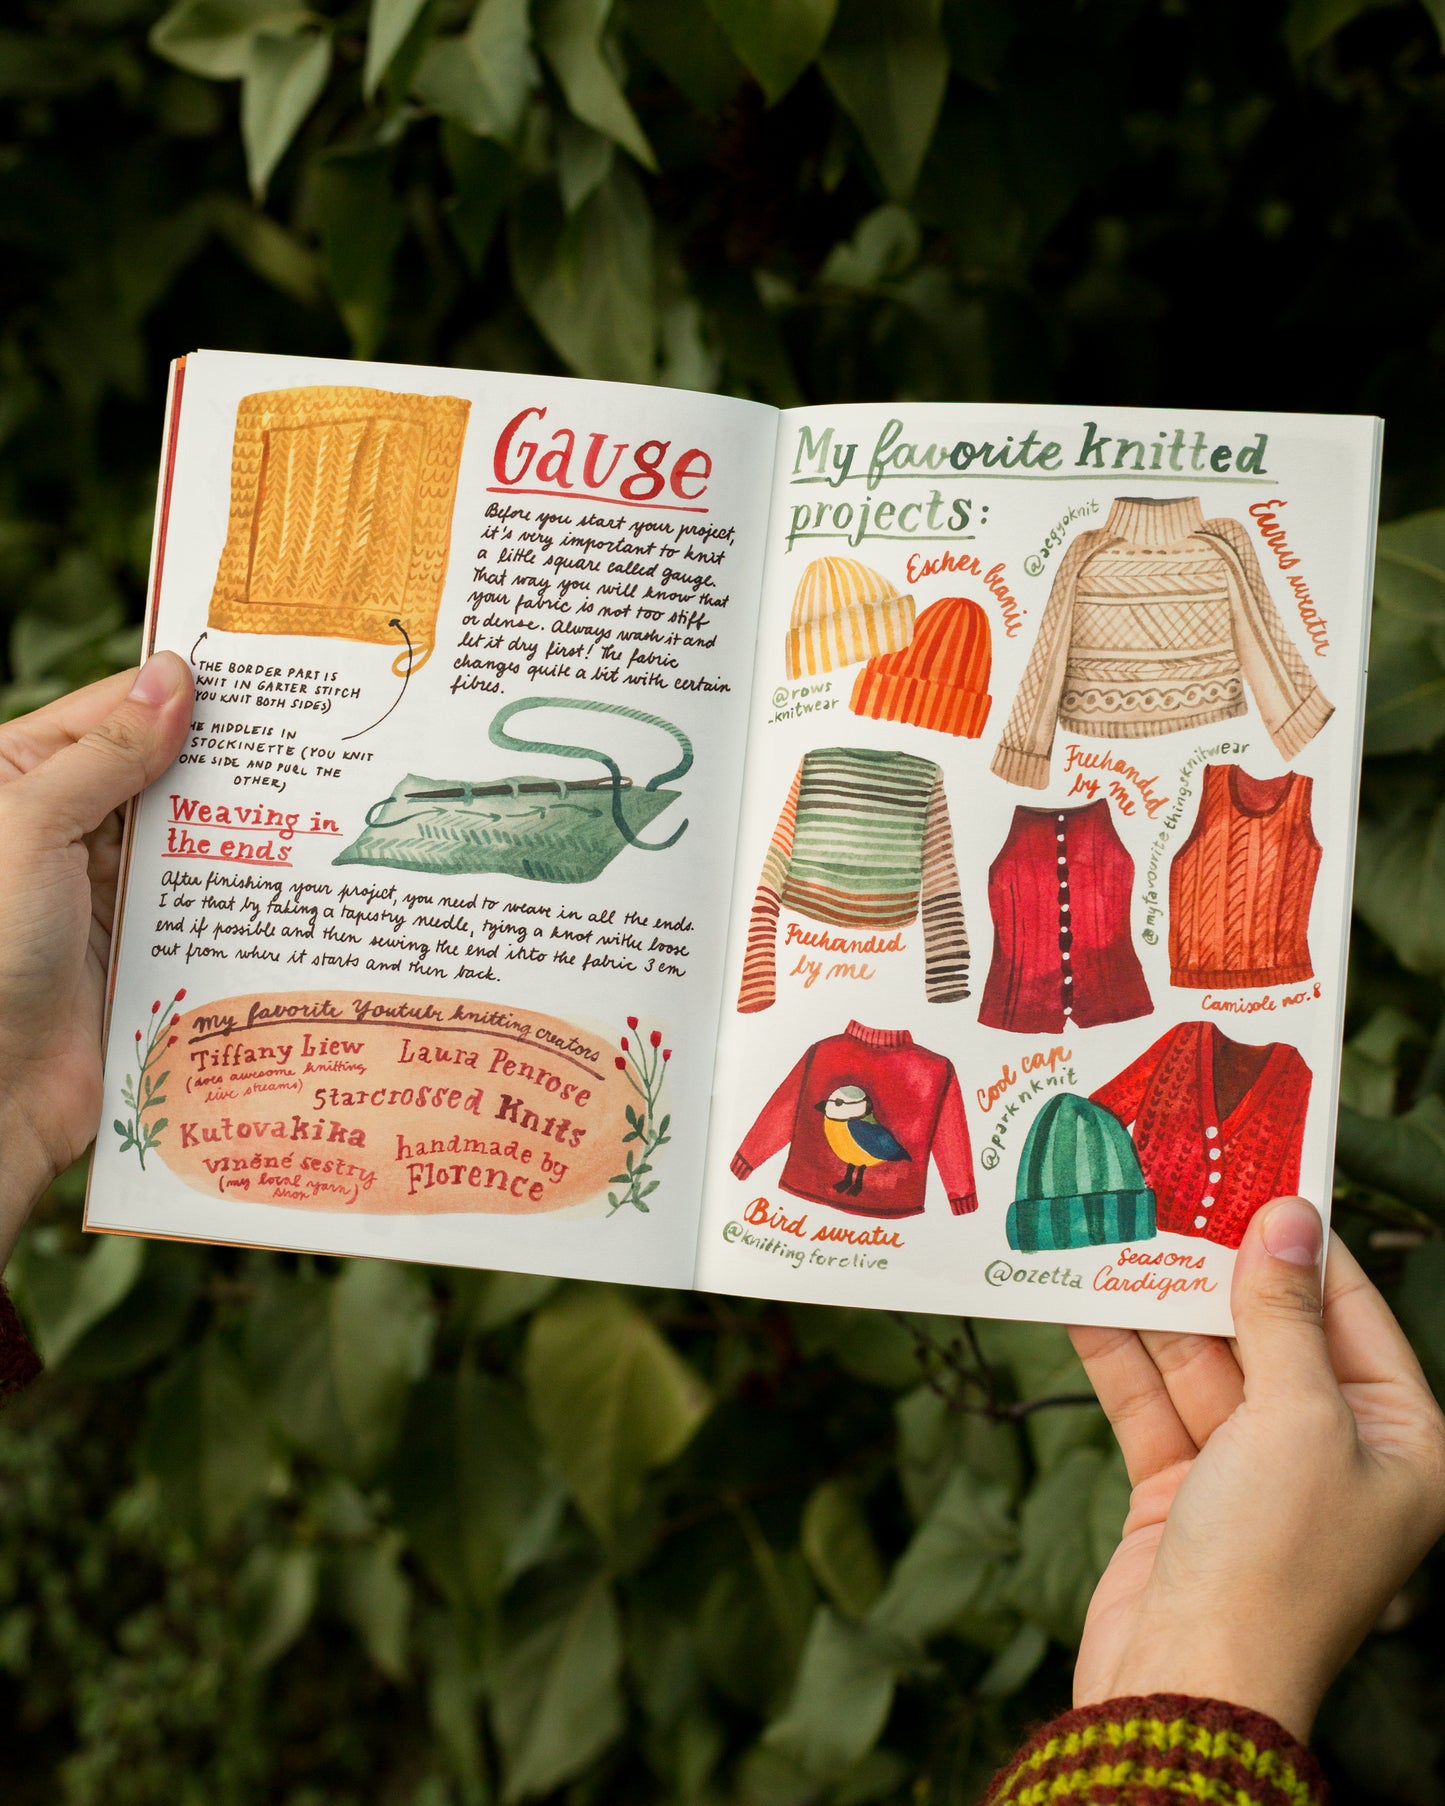 Gauge
Before you start your project,
it's very important to knit
a little square called gauge.
That way you will know that
your fabric is not too stiff
or dense. Always wash it and
let it dry first! The fabric
changes quite a bit with certain
fibres.
THE BORDER PART IS
KNIT IN GARTER STITCH
YOU KNIT BOTH SIDES)
HE MIDDLE IS IN
STOCKINETTE (YOU KNIT
ONE SIDE AND PURL THE
OTHER)
Weaving in
the ends
After finishing your project, you need to weave in all the ends.
I do that by taking a tapestry needle, tying a knot withe loose
end if possible and then sewing the end into the fabric 3 cm
out from where it starts and then back.
My favorite Youtube knitting creators
Tiffany Liew
(does awesome knitting
live streams)
Laura Penrose
Starcrossed Knits
Kutovakika
vlněné sestry
(my local yarn
shop)
handmade by
Florence
My favorite knitted
projects:
Escher beanie
@rows
-knitwear
@aegyoknit
Eurus sweater
Freehanded
by me
Freehanded
by me
@myfavouritethingsknitwear
Camisole no. 8
Bird sweater
@knittingforolive
Cool cap
@parknknit
@ozetta
Seasons
Cardigan